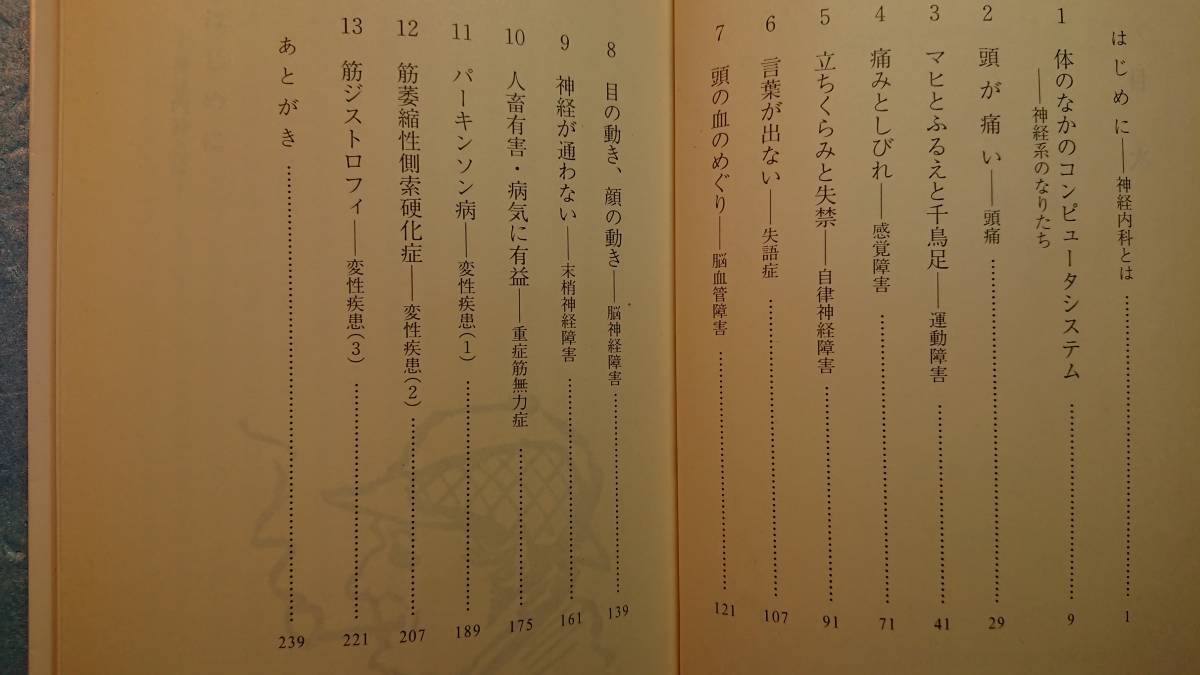 はじめに――神経内科とは……………1
1 体のなかのコンピュータシステム
――神経系のなりたち……………9
2 頭が痛い――頭痛……………29
3 マヒとふるえと千鳥足――運動障害……………41
4 痛みとしびれ――感覚障害……………71
5 立ちくらみと失禁――自律神経障害……………91
6 言葉が出ない――失語症……………107
7 頭の血のめぐり――脳血管障害……………121
8 目の動き、顔の動き――脳神経障害……………139
9 神経が通わない――末梢神経障害……………161
10 人畜有害・病気に有益――重症筋無力症……………175
11 パーキンソン病――変性疾患(1)……………189
12 筋萎縮性側索硬化症――変性疾患(2)……………207
13 筋ジストロフィ――変性疾患(3)……………221
あとがき……………239